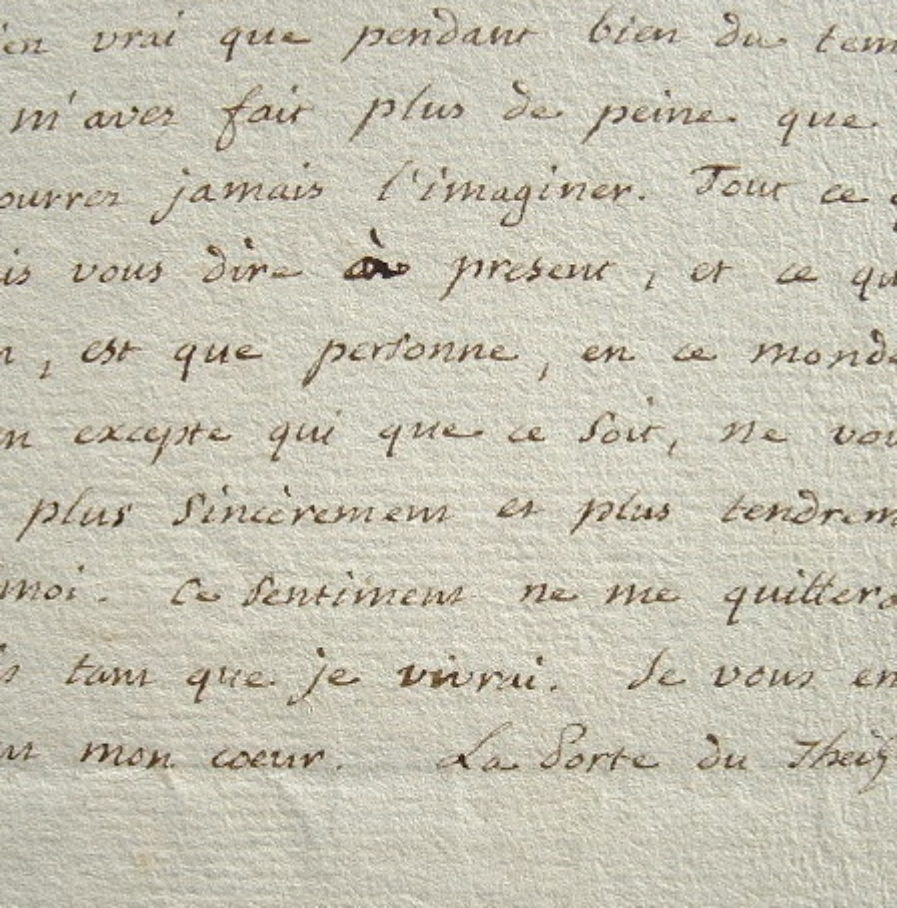 en vrai que pendant bien du tem
m'avez fait plus de peine que
ourrez jamais l'imaginer. Tout ce q
is vous dire à present, et ce qu
n, est que personne, en ce monde
en excepte qui que ce soit, ne vou
plus sincèrement et plus tendrem
moi. Ce sentiment ne me quittera
is tant que je vivrai. Je vous em
ut mon coeur. La Porte du Theil